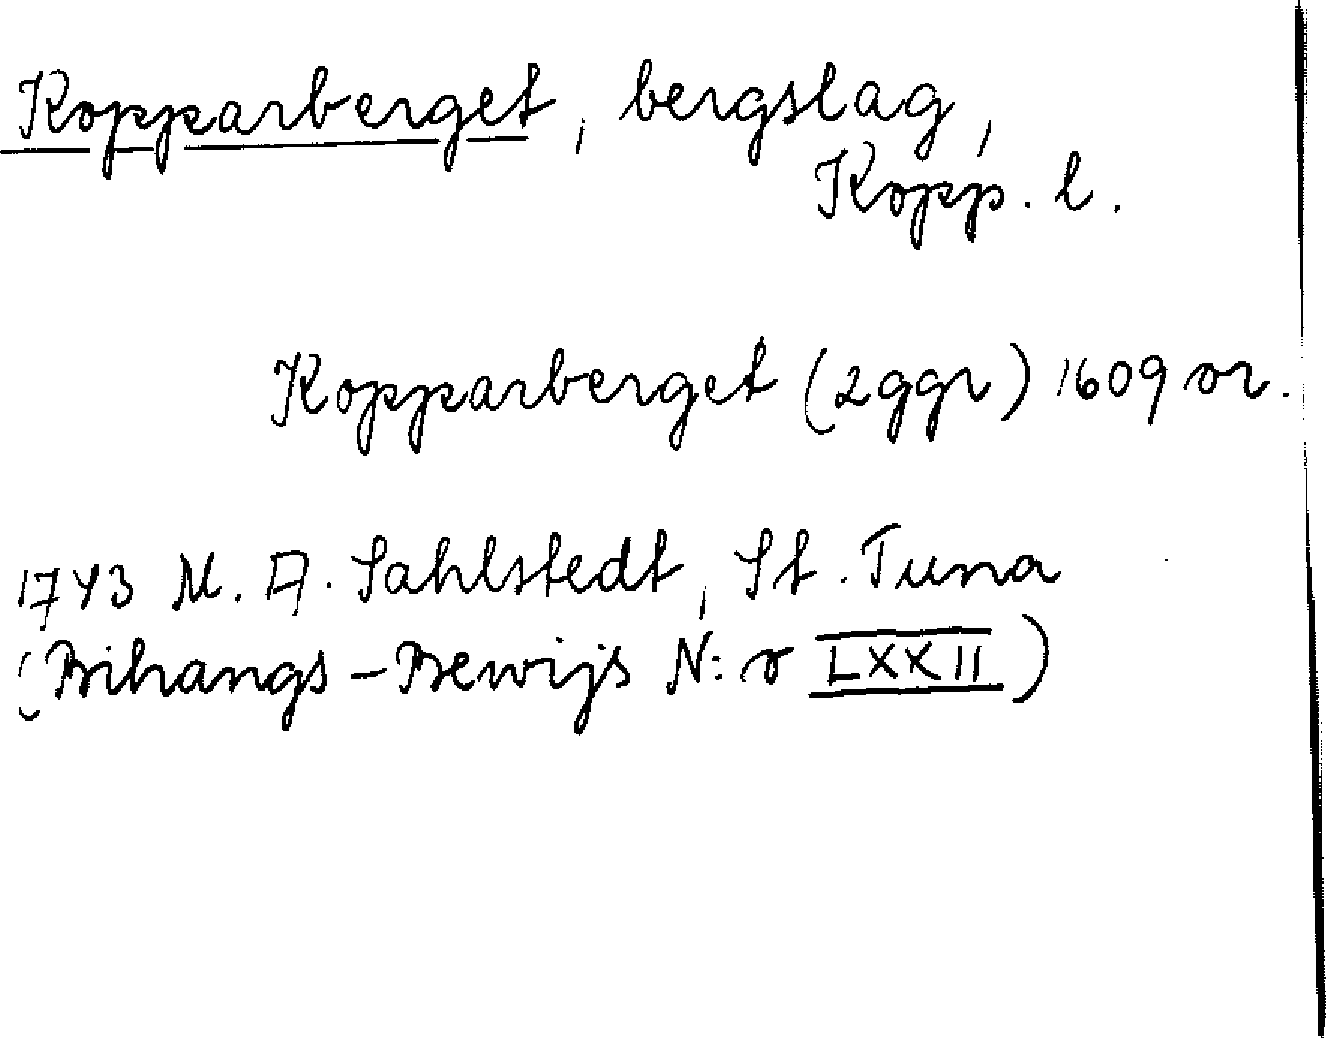 Kopparberget, bergslag,
Kopp. l.
Kopparberget (2ggr) 1609 or.
1743 M. A. Sahlstedt, St. Tuna
(Bihangs-Bewijs N:o LXXII)